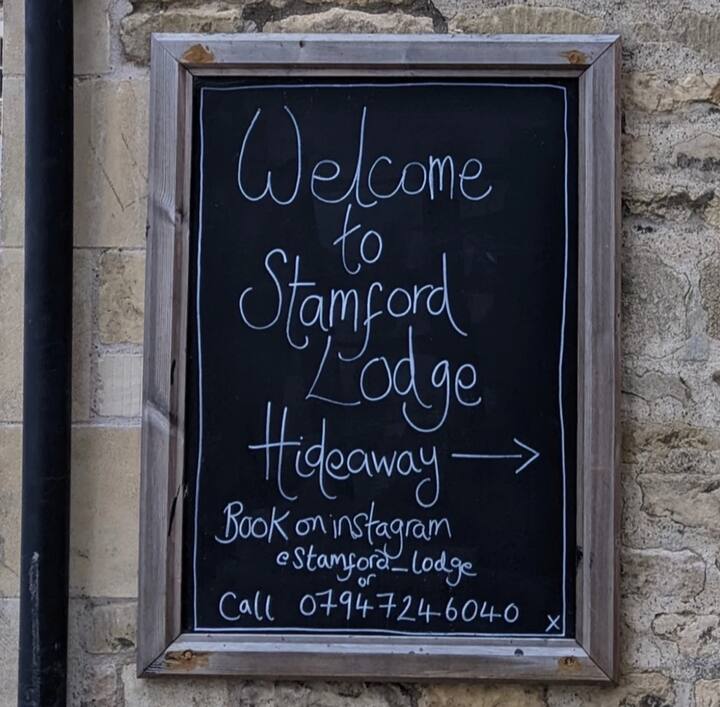 Welcome
to
Stamford
Lodge
Hideaway →
Book on instagram
@Stamford_lodge
or
Call 07947246040 x